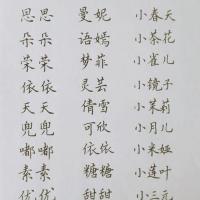 思思 曼妮 小春天
朵朵 语嫣 小茶花
荣荣 梦菲 小雀儿
依依 灵芸 小镜子
天天 倩雪 小茉莉
兜兜 可欣 小月儿
嘟嘟 依依 小米娅
素素 糖糖 小莲叶
优优 甜甜 小三元